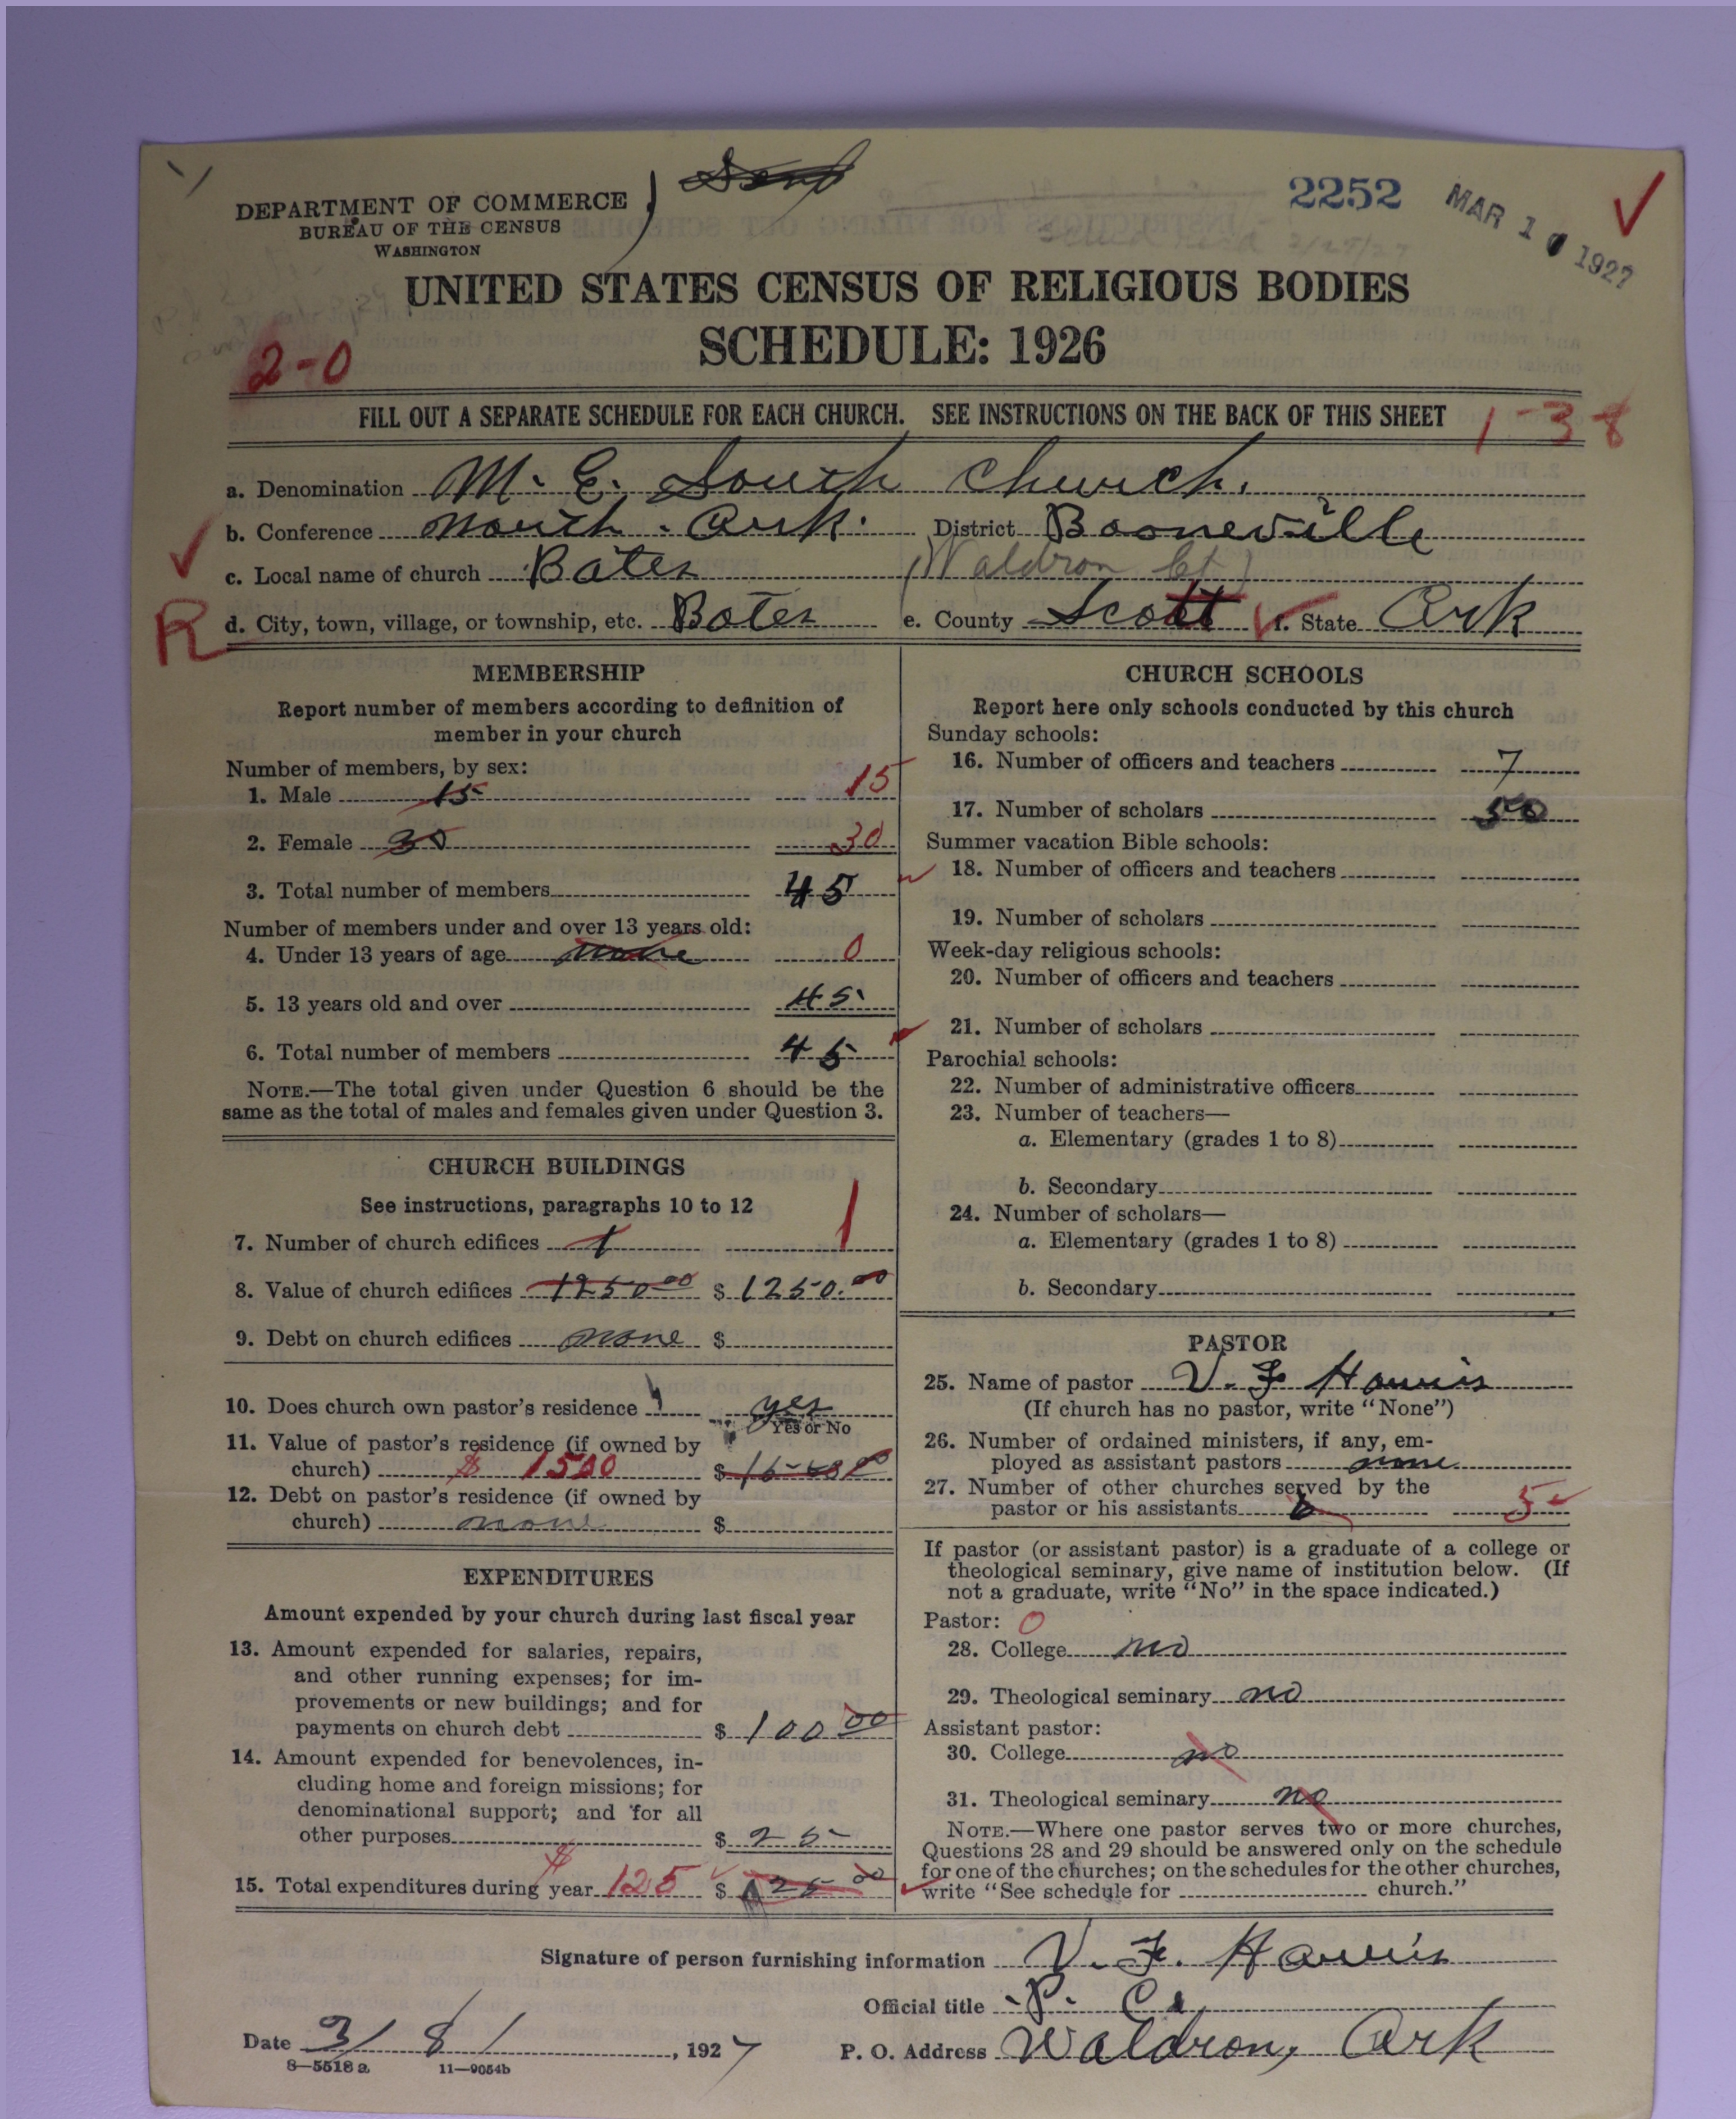 Send
2252
MAR 10 1927
DEPARTMENT OF COMMERCE
BUREAU OF THE CENSUS
WASHINGTON
UNITED STATES CENSUS OF RELIGIOUS BODIES
SCHEDULE: 1926
2-0
FILL OUT A SEPARATE SCHEDULE FOR EACH CHURCH. SEE INSTRUCTIONS ON THE BACK OF THIS SHEET
1-38
a. Denomination M. E. South Church.
b. Conference North. Ark. District Booneville
c. Local name of church Bates (Waldron Ct)
R
d. City, town, village, or township, etc. Bates e. County Scott f. State Ark
MEMBERSHIP
Report number of members according to definition of
member in your church
Number of members, by sex:
1. Male 15 15
2. Female 30 30
3. Total number of members 45
Number of members under and over 13 years old:
4. Under 13 years of age none 0
5. 13 years old and over 45
6. Total number of members 45
NOTE.—The total given under Question 6 should be the
same as the total of males and females given under Question 3.
CHURCH BUILDINGS
See instructions, paragraphs 10 to 12
7. Number of church edifices 1 1
8. Value of church edifices 1250 00 $ 1250.00
9. Debt on church edifices none $
10. Does church own pastor's residence yes
Yes or No
11. Value of pastor's residence (if owned by
church) $ 1500 $ 1500 00
12. Debt on pastor's residence (if owned by
church) none $
EXPENDITURES
Amount expended by your church during last fiscal year
13. Amount expended for salaries, repairs,
and other running expenses; for im-
provements or new buildings; and for
payments on church debt $ 100 00
14. Amount expended for benevolences, in-
cluding home and foreign missions; for
denominational support; and for all
other purposes $ 25
15. Total expenditures during year $ 125 $ 125 00
CHURCH SCHOOLS
Report here only schools conducted by this church
Sunday schools:
16. Number of officers and teachers 7
17. Number of scholars 50
Summer vacation Bible schools:
18. Number of officers and teachers
19. Number of scholars
Week-day religious schools:
20. Number of officers and teachers
21. Number of scholars
Parochial schools:
22. Number of administrative officers
23. Number of teachers—
a. Elementary (grades 1 to 8)
b. Secondary
24. Number of scholars—
a. Elementary (grades 1 to 8)
b. Secondary
PASTOR
25. Name of pastor V. F. Harris
(If church has no pastor, write "None")
26. Number of ordained ministers, if any, em-
ployed as assistant pastors none
27. Number of other churches served by the
pastor or his assistants 5
If pastor (or assistant pastor) is a graduate of a college or
theological seminary, give name of institution below. (If
not a graduate, write "No" in the space indicated.)
Pastor: 0
28. College no
29. Theological seminary no
Assistant pastor:
30. College no
31. Theological seminary no
NOTE.—Where one pastor serves two or more churches,
Questions 28 and 29 should be answered only on the schedule
for one of the churches; on the schedules for the other churches,
write "See schedule for church."
Signature of person furnishing information V. F. Harris
Official title P. C.
Date 3/8/, 1927 P. O. Address Waldron, Ark
8—5518 a 11—9054b